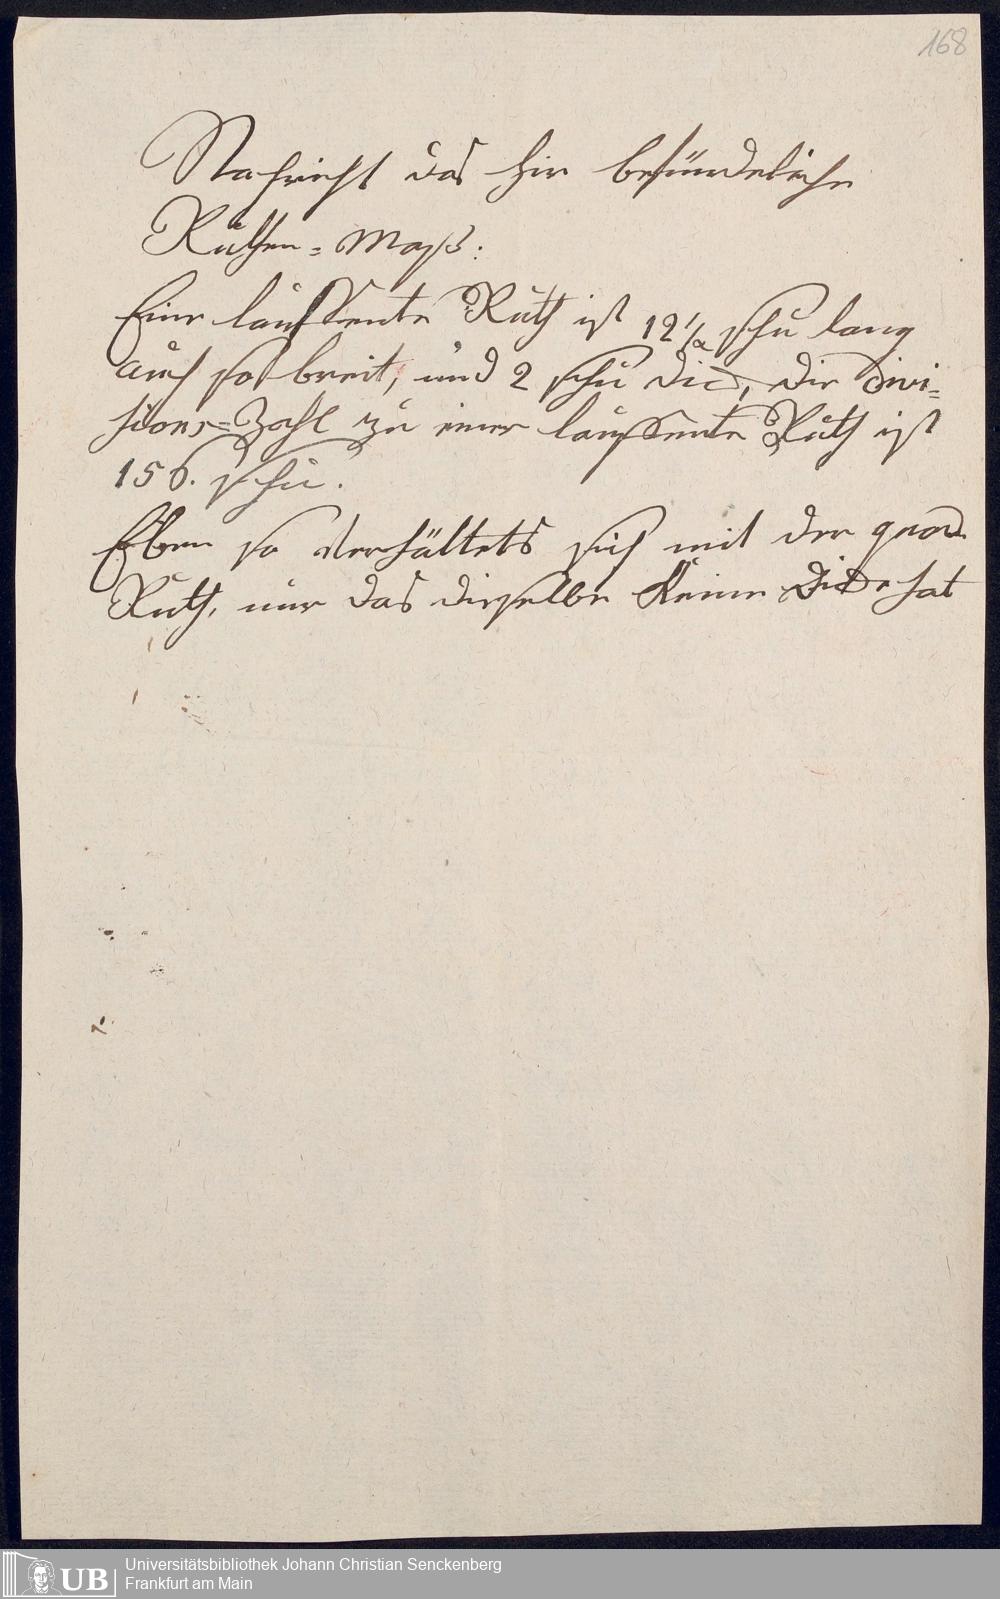 168
Nachricht das hir befündeliche
Ruthen=Maß:
Eine lauffente Ruth ist 12 1/2 schu lang
auch so breit, und 2 schu dick, die Divi=
sions=Zahl zu einer lauffente Ruth ist
156. schu.
Eben so verhältets sich mit der quad.
Ruth, nur das dieselbe Keine Dicke hat
Universitätsbibliothek Johann Christian Senckenberg
Frankfurt am Main
UB